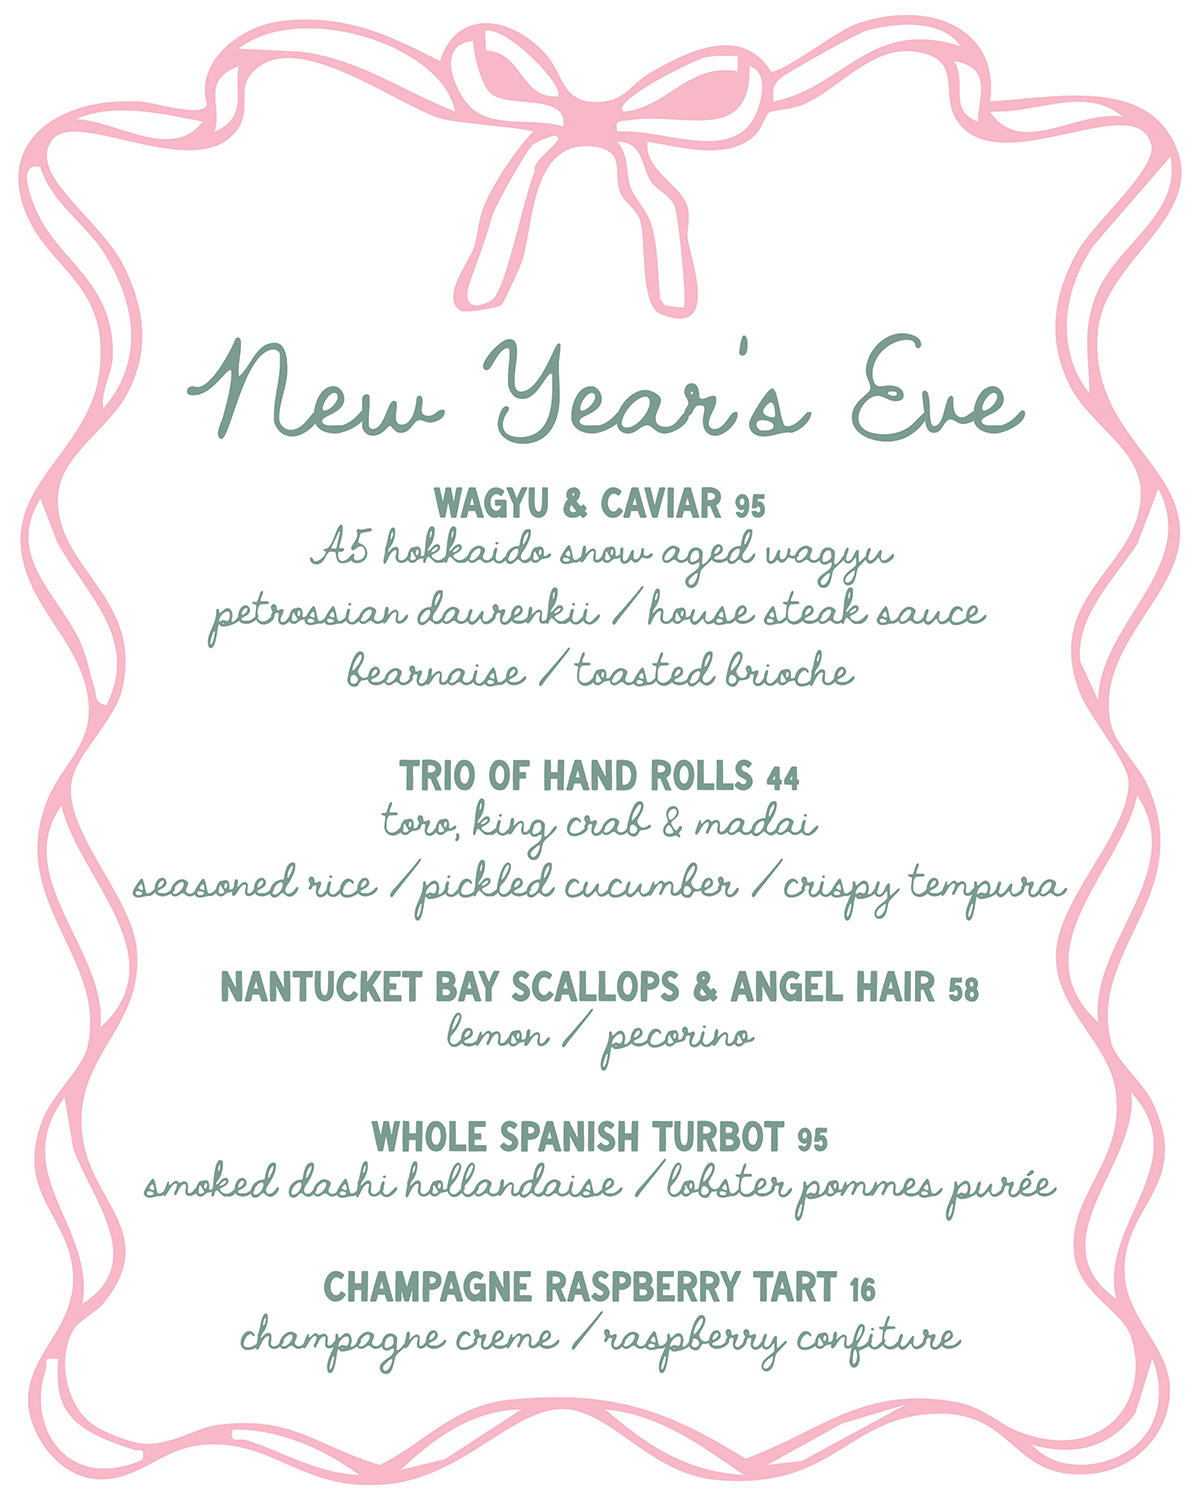 New Year's Eve
WAGYU & CAVIAR 95
A5 hokkaido snow aged wagyu
petrossian daurenkii / house steak sauce
bearnaise / toasted brioche
TRIO OF HAND ROLLS 44
toro, king crab & madai
seasoned rice / pickled cucumber / crispy tempura
NANTUCKET BAY SCALLOPS & ANGEL HAIR 58
lemon / pecorino
WHOLE SPANISH TURBOT 95
smoked dashi hollandaise / lobster pommes purée
CHAMPAGNE RASPBERRY TART 16
champagne creme / raspberry confiture